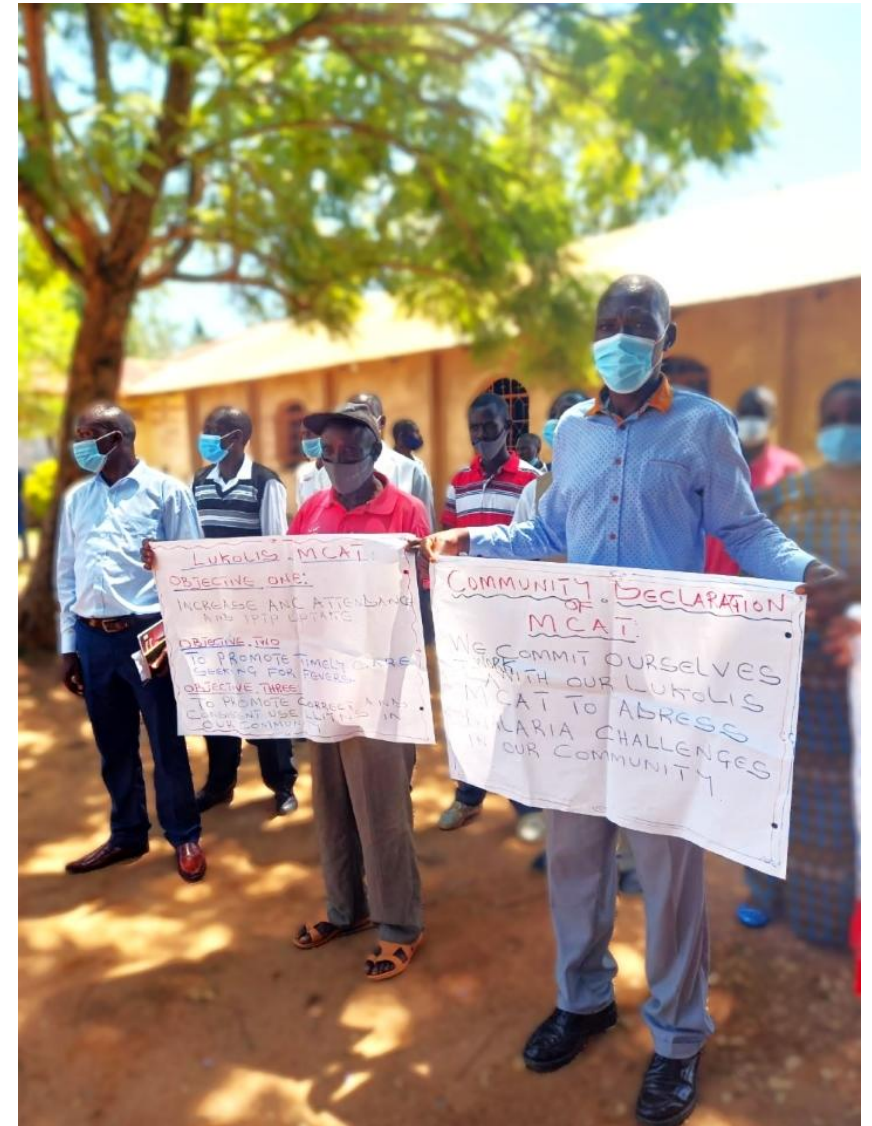 LUKOLIS MCAT
OBJECTIVE ONE:
INCREASE ANC ATTENDANCE
AND IPTP UPTAKE
OBJECTIVE TWO
TO PROMOTE TIMELY CARE
SEEKING FOR FEVERS
OBJECTIVE THREE
TO PROMOTE CORRECT AND
USE IN
OUR COMMUNITY
COMMUNITY DECLARATION
OF
MCAT
WE COMMIT OURSELVES
WITH OUR LUKOLIS
MCAT TO ADRESS
MALARIA CHALLENGES
IN OUR COMMUNITY